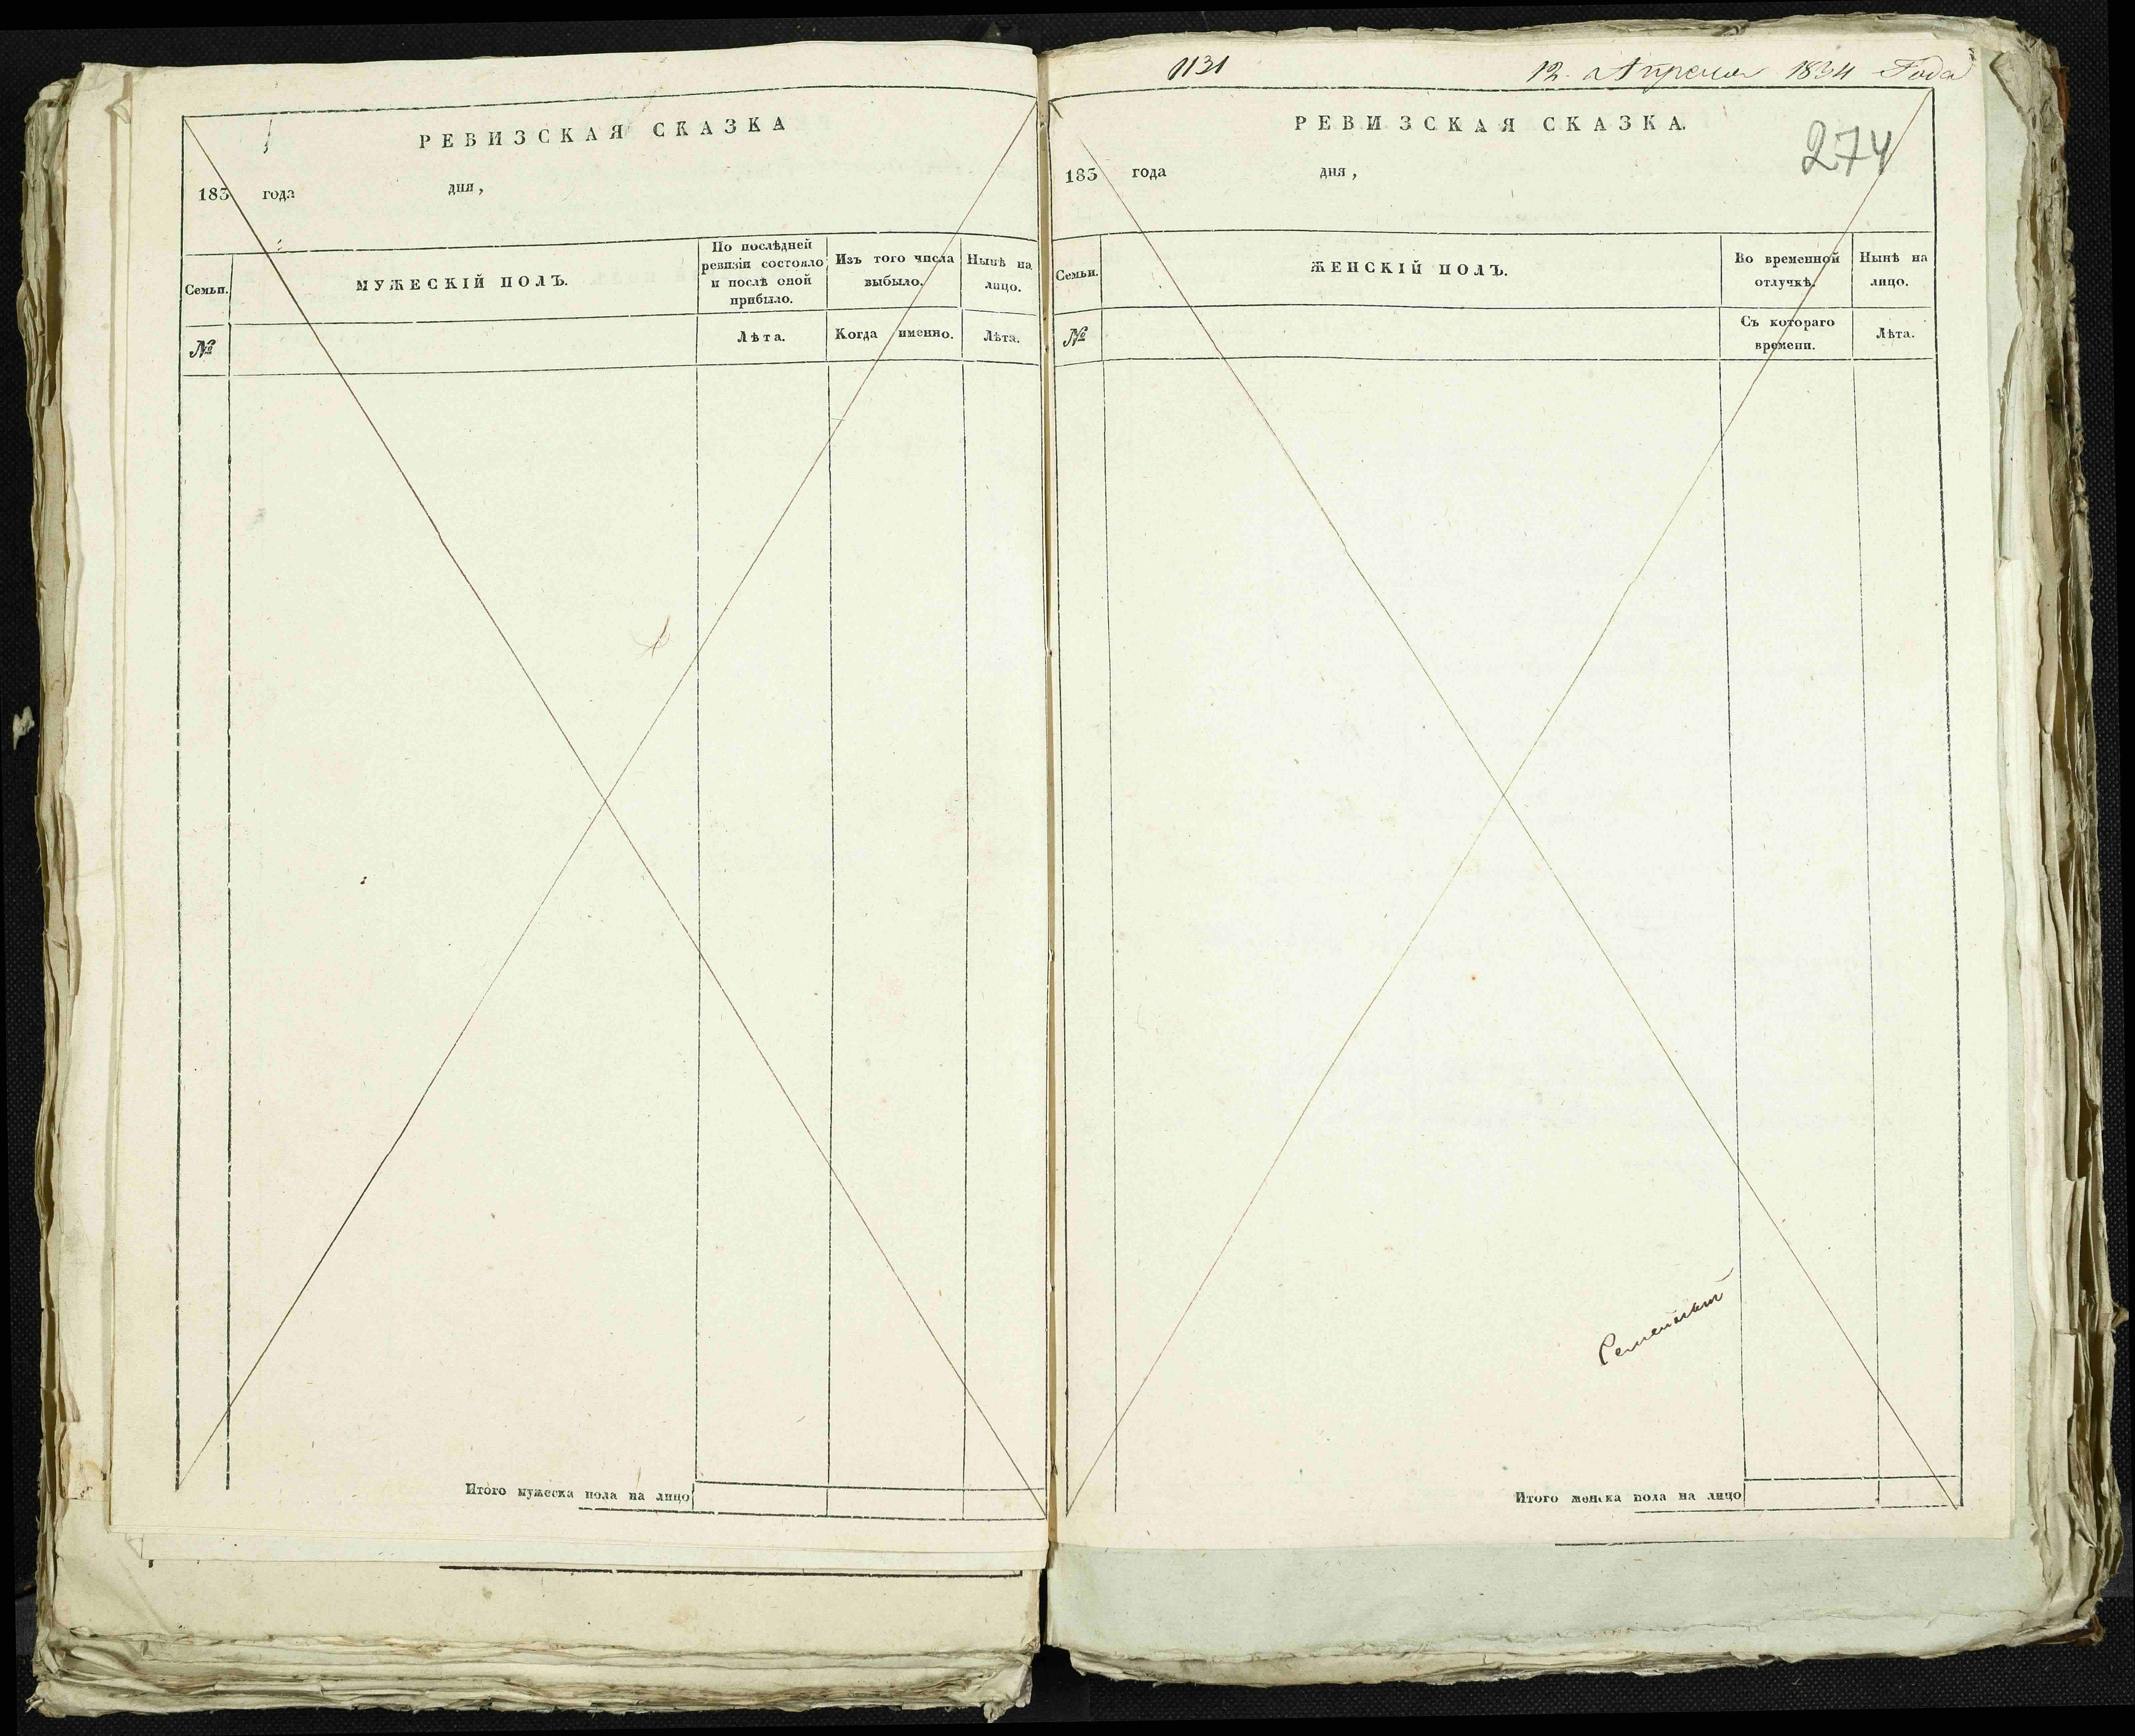 РЕВИЗСКАЯ СКАЗКА
183 года дня,
Семьи.
МУЖЕСКІЙ ПОЛЪ.
По послѣдней ревизіи состояло и послѣ оной прибыло.
Изъ того числа выбыло.
Нынѣ на лицо.
№
Лѣта.
Когда именно.
Лѣта.
Итого мужеска пола на лицо
1131
12. Апреля 1834 Года
РЕВИЗСКАЯ СКАЗКА.
274
183 года дня,
Семьи.
ЖЕНСКІЙ ПОЛЪ.
Во временной отлучкѣ.
Нынѣ на лицо.
№
Съ котораго времени.
Лѣта.
Итого женска пола на лицо